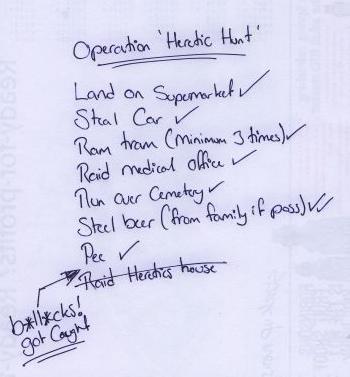 Operation 'Heretic Hunt'
Land on Supermarket ✓
Steal Car ✓
Ram tram (minimum 3 times) ✓
Raid medical office ✓
Run over Cemetery ✓
Steel beer (from family if poss) ✓✓
Pee ✓
Raid Heretics house
b*ll*cks!
got Caught